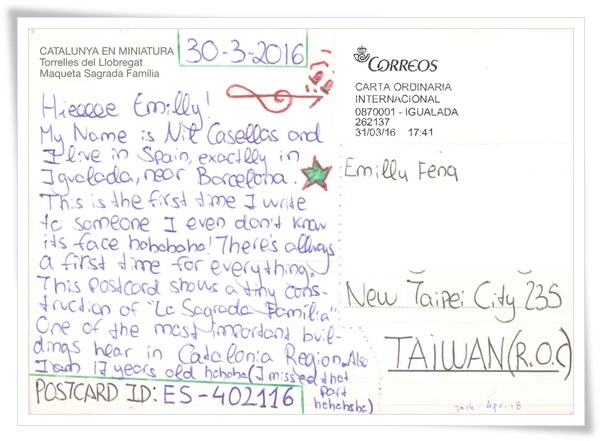 CATALUNYA EN MINIATURA
Torrelles del Llobregat
Maqueta Sagrada Família
30-3-2016
Hieeeee Emilly!
My Name is Nil Casellas and
I live in Spain, exactlly in
Igualada, near Barcelona.
This is the first time I write
to someone I even don't know
its face hahahaha! There's allways
a first time for everything.
This postcard shows a tiny cons-
truction of "La Sagrada Família".
One of the most important buil-
dings near in Catalonia Region. Also
I am 17 years old hahaha (I missed that
part
hahahaha)
POSTCARD ID: ES-402116
CORREOS
CARTA ORDINARIA
INTERNACIONAL
0870001 - IGUALADA
262137
31/03/16 17:41
Emilly Feng
New Taipei City 235
TAIWAN (R.O.C)
2016-Apr-18